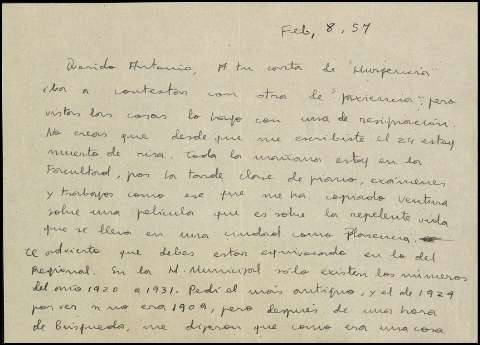 Feb, 8, 57
Querido Antonio, A tu carta de "Murgencia"
iba a contestar con otra de "paciencia" pero
vistas las cosas lo hago con una de resignación.
No creas que desde que me escribiste el 24 estoy
muerto de risa. Toda la mañana estoy en la
Facultad, por la tarde clase de piano, exámenes
y trabajos como ese que me ha copiado Ventura
sobre una película que es sobre la repelente vida
que se lleva en una ciudad como Plasencia.
Te advierto que debes estar equivocado en lo del
Regional. En la H. Municipal sólo existen los números
del año 1920 a 1931. Pedí el más antiguo, y el de 1929
por ver si no era 1909, pero después de una hora
de búsqueda, me dijeron que como era una cosa